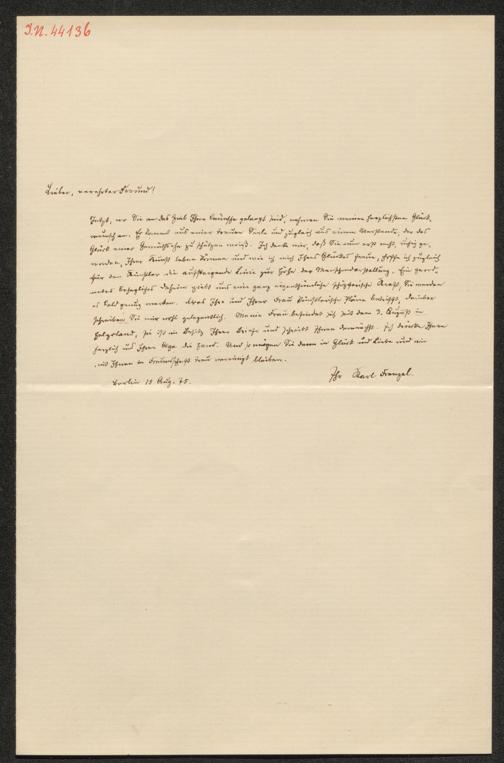 J.N. 44136
Lieber, verehrter Freund!
Jetzt, wo Sie an das Ziel Ihrer Wünsche gelangt sind, nehmen Sie meinen herzlichsten Glück-
wunsch an. Er kommt aus einer treuen Seele und zugleich aus einem Verstande, der das
Glück einer zu schätzen weiß. Ich denke mir, daß Sie nun erst recht, ruhig ge-
worden, Ihrer Kunst leben können und wie ich mich Ihres Glückes freue, hoffe ich zugleich
für den Künstler die aufsteigende Linie zur Höhe der Menschendarstellung. Ein
behagliches Daheim giebt uns eine ganz eigenthümliche schöpferische Kraft, Sie werden
es bald genug merken. Was Ihre und Ihrer Frau künstlerische Pläne betrifft, darüber
schreiben Sie mir wohl gelegentlich. Meine Frau befindet sich seit dem 3. August in
Helgoland, sie ist im Besitz Ihres Briefes und schreibt Ihnen demnächst. Ich drücke Ihnen
herzlich und Ihrer die Hand. Und so mögen Sie denn in Glück und Liebe und wir
mit Ihnen in Freundschaft treu vereinigt bleiben.
Berlin 15 Aug. 75.
Ihr Karl Frenzel.